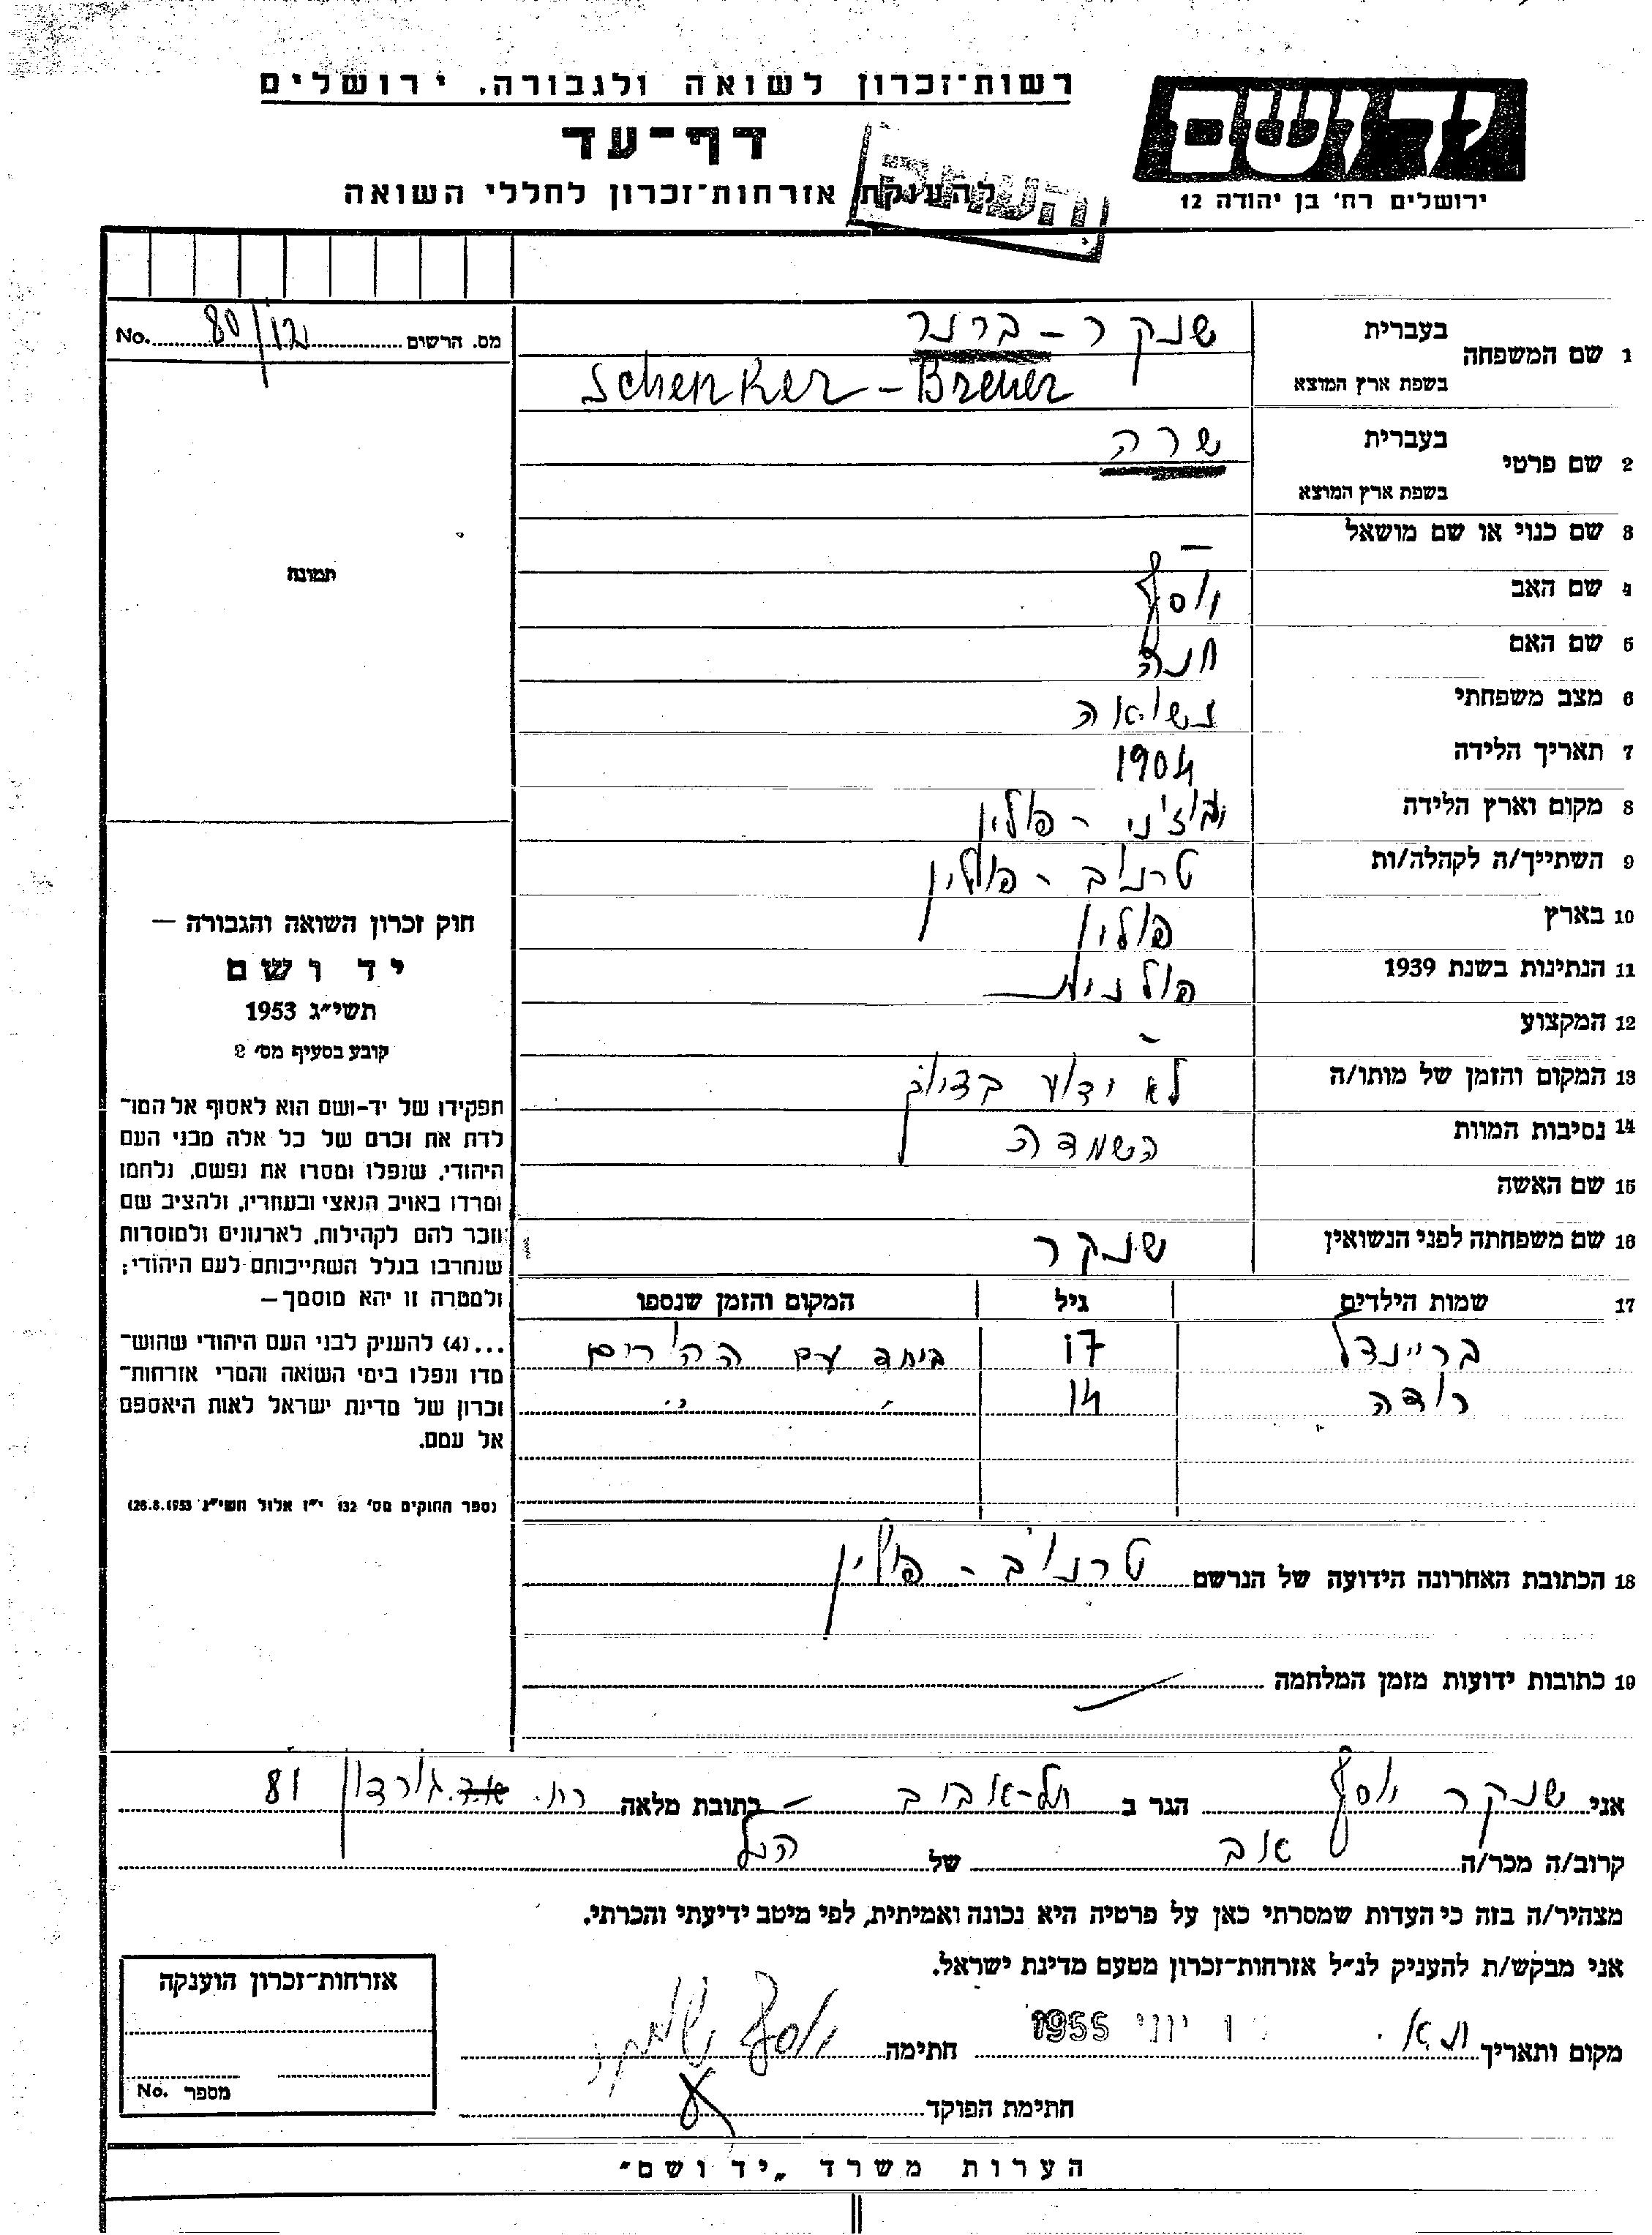 רשות־זכרון לשואה ולגבורה, ירושלים
יד ושם
דף־עד
להענקת אזרחות־זכרון לחללי השואה
ירושלים רח' בן יהודה 12
מס. הרשום 80/121 No.
1 שם המשפחה
בעברית שנקר - ברנר
בשפת ארץ המוצא Schenker - Brener
2 שם פרטי
בעברית שרה
בשפת ארץ המוצא
3 שם כנוי או שם מושאל –
4 שם האב יוסף
5 שם האם חנה
6 מצב משפחתי נשואה
7 תאריך הלידה 1904
8 מקום וארץ הלידה - פולין
9 השתייך/ה לקהלה/ות טרנוב - פולין
10 בארץ פולין
11 הנתינות בשנת 1939 פולנית
12 המקצוע -
13 המקום והזמן של מותו/ה לא ידוע בדיוק
14 נסיבות המוות השמדה
15 שם האשה
16 שם משפחתה לפני הנשואין שנקר
17 שמות הילדים גיל המקום והזמן שנספו
בריינדל 17 ביחד עם ההורים
רודה 14 " "
18 הכתובת האחרונה הידועה של הנרשם טרנוב - פולין
19 כתובות ידועות מזמן המלחמה
תמונה
חוק זכרון השואה והגבורה —
יד ושם
תשי״ג 1953
קובע בסעיף מס' 2
תפקידו של יד-ושם הוא לאסוף אל המו־
לדת את זכרם של כל אלה מבני העם
היהודי, שנפלו ומסרו את נפשם, נלחמו
ומרדו באויב הנאצי ובעוזריו, ולהציב שם
וזכר להם לקהילות, לארגונים ולמוסדות
שנחרבו בגלל השתייכותם לעם היהודי;
ולמטרה זו יהא מוסמך—
...(4) להעניק לבני העם היהודי שהוש־
מדו ונפלו בימי השואה והמרי אזרחות־
זכרון של מדינת ישראל לאות היאספם
אל עמם.
(ספר החוקים מס' 132 י״ז אלול תשי״ג 28.8.1953)
אני שנקר יוסף הגר ב תל-אביב - כתובת מלאה רח. א.ד. גורדון 81
קרוב/ה מכר/ה אב של הנ״ל
מצהיר/ה בזה כי העדות שמסרתי כאן על פרטיה היא נכונה ואמיתית, לפי מיטב ידיעתי והכרתי.
אני מבקש/ת להעניק לנ״ל אזרחות־זכרון מטעם מדינת ישראל.
מקום ותאריך ת.א. יוני 1955 חתימה יוסף שנקר
חתימת הפוקד
אזרחות־זכרון הוענקה
מספר No.
הערות משרד „יד ושם״